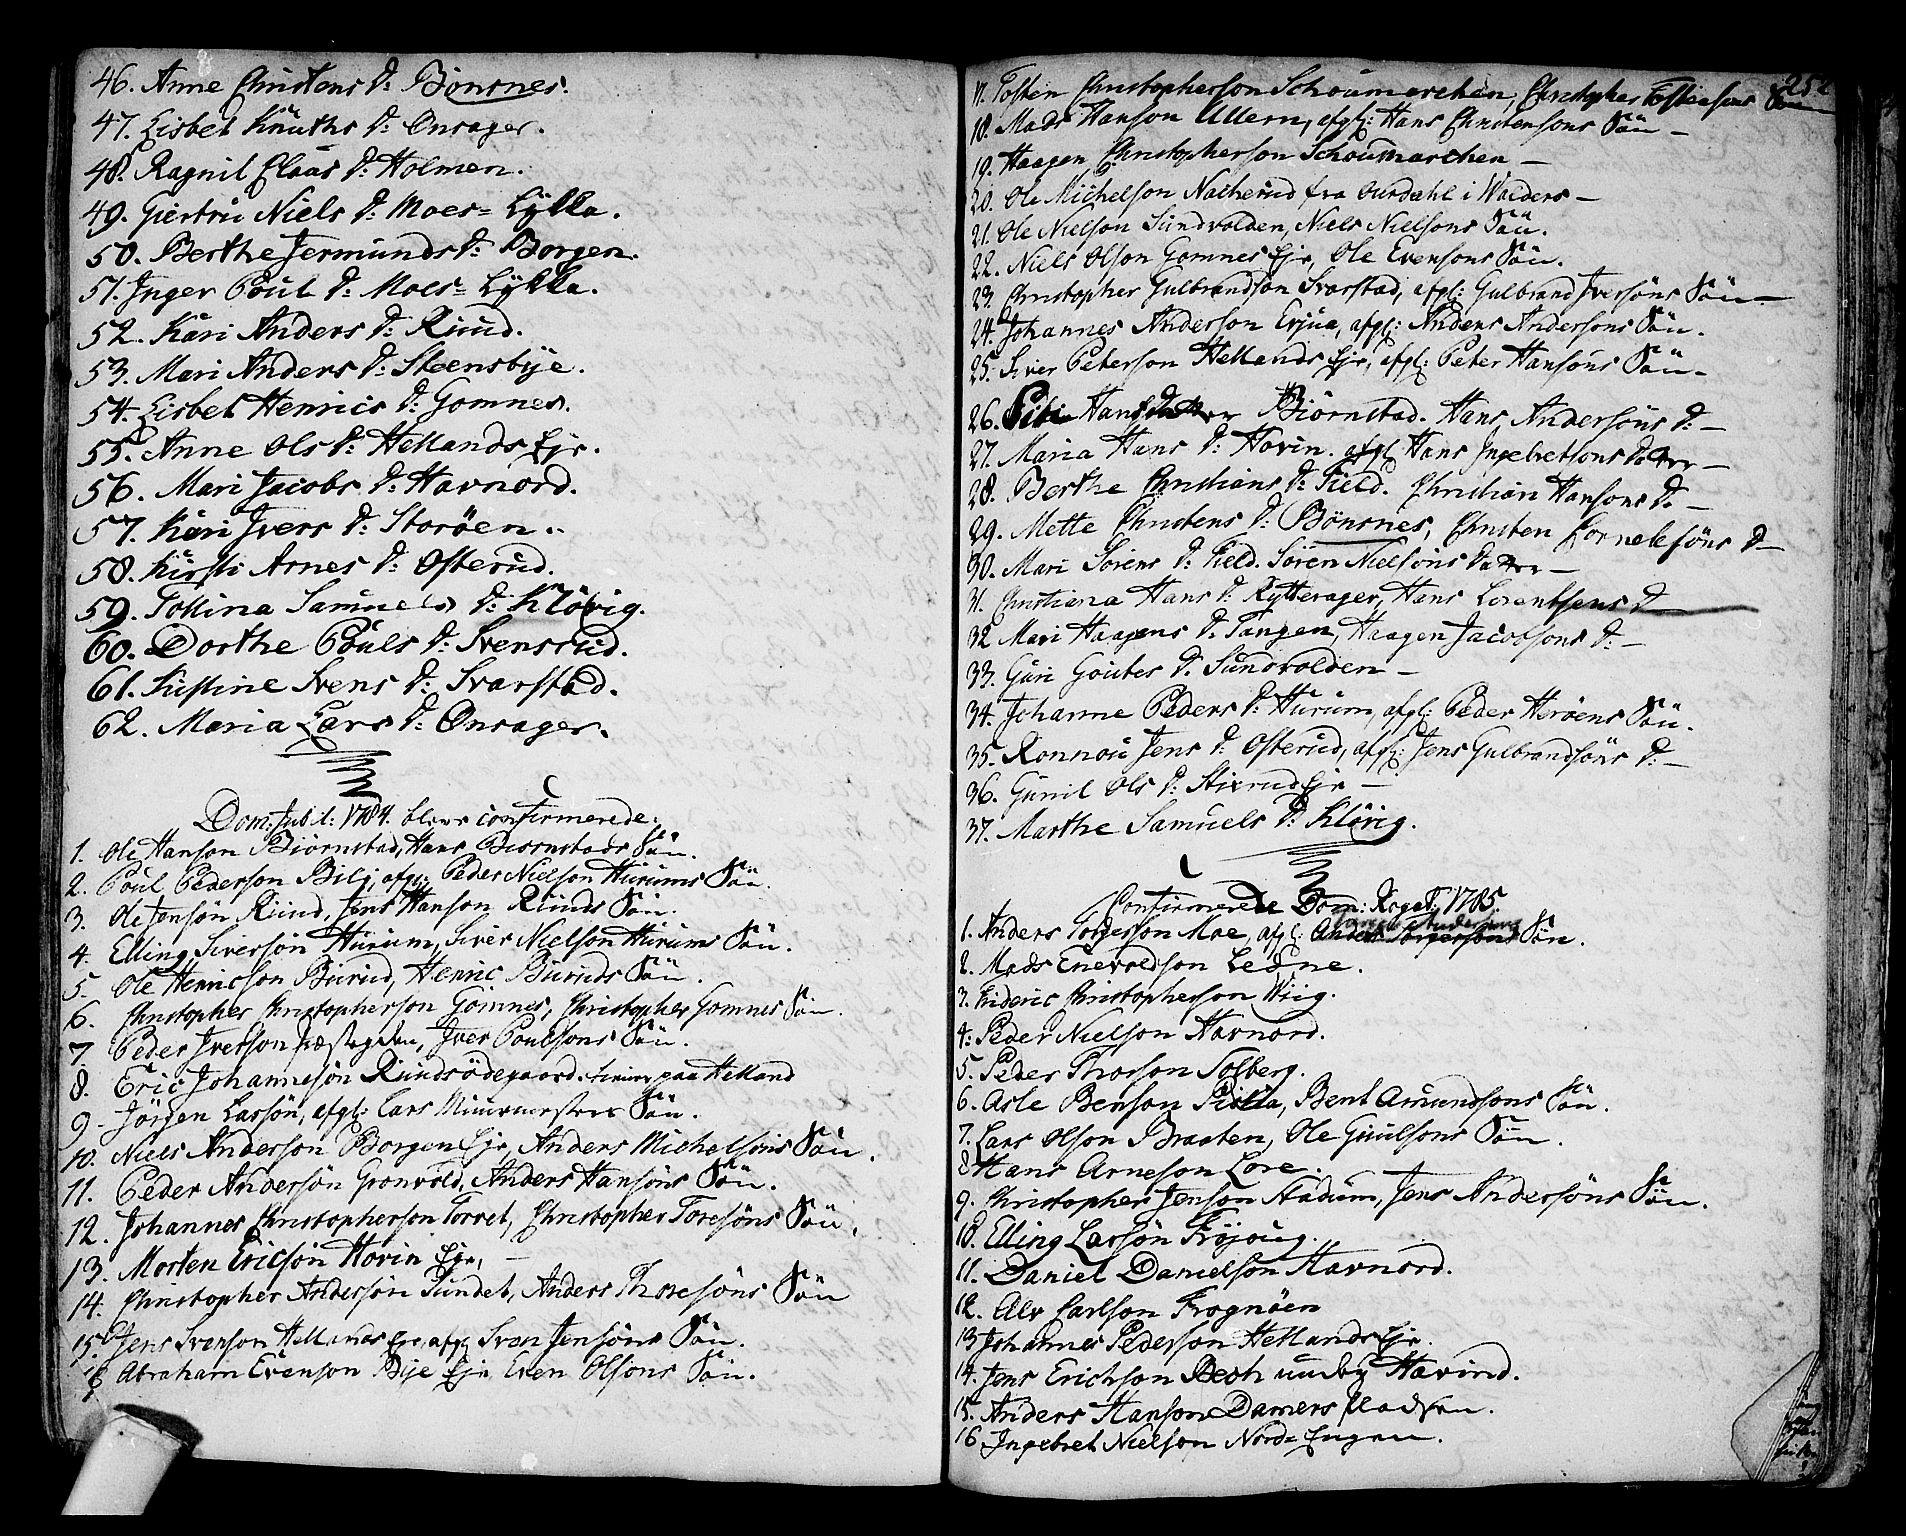 46. Anne Christens D: Bönsnes.
47. Lisbet Knuths D: Onsager.
48. Ragnil Claas D: Holmen.
49. Giertru Niels D: Moes= Lÿkka.
50. Berthe Jermunds D: Borgen.
51. Inger Poul D: Moes= Lÿkka.
52. Kari Anders D: Rüüd.
53. Mari Anders D: Steensbÿe.
54. Lisbet Henrics D: Gomnes.
55. Anne Ols D: Hellands Eje.
56. Mari Jacobs D: Havnord.
57. Kari Ivers D: Storöen.
58. Kirsti Arnes D: Osterud.
59. Tolline Samuels D: Klövig.
60. Dorthe Pouls D: Svensrud.
61. Kirstine Svens D: Svarstad.
62. Maria Lars D: Onsager.
Dom: Jubil: 1784. bleve confirmerede.
1. Ole Hanson Biörnstad, Hans Biörnstads Sön.
2. Poul Pederson Bili, afgl: Peder Nielson Hurums Sön.
3. Ole Jensön Rüüd, Jens Hanson Rüüds Sön.
4. Elling Siversön Hurum, Siver Nielson Hurums Sön.
5. Ole Henricson Burud, Henric Buruds Sön.
6. Christopher Christopherson Gomnes, Christopher Gomnes Sön.
7. Peder Iverson Præstegden, Iver Poulsons Sön.
8. Eric Johannesön Rüüdsödegaard. tiener paa Helland
9. Jörgen Larsön, afgl: Lars Muurmesters Sön.
10. Niels Anderson Borgen Eje, Anders Michelsöns Sön.
11. Peder Andersön Gronvold, Anders Hansöns Sön.
12. Johannes Christopherson Torret, Christopher Toresöns Sön.
13. Morten Ericson Hovin Eje, —
14. Christopher Andersön Sundet, Anders Thoresöns Sön
15. Jens Svenson Hellands Eje, afgl Sven Jensöns Sön.
16 Abraham Evenson Bÿe Eje Even Olsons Sön.
252
17. Tosten Christopherson Schoumarchen, Christopher Tostensons Sön
18. Mads Hanson Ullern, afgl: Hans Christensons Sön —
19. Haagen Christopherson Schoumarchen —
20. Ole Michelson Nacherud fra Ourdahl i Walders —
21. Ole Nielson Sundvolden, Niels Nielsons Sön.
22. Niels Olson Gomnes Eje, Ole Evensons Sön.
23. Christopher Gulbrandson Svarstad, afgl: Gulbrand Iversöns Sön —
24. Johannes Anderson Erjua, afgl: Anders Andersons Sön.
25. Siver Peterson Hellands Eje, afgl: Peter Hansons Sön —
26. Hans Datter Biörnstad. Hans Andersöns D: —
27. Maria Hans D: Hovin. afgl Hans Ingebretsons Datter —
28. Berthe Christians D: Field. Christian Hansons D: —
29. Mette Christens D: Bönsnes, Christen Cornelesöns D —
30. Mari Sörens D: Field. Sören Nielsöns Datter —
31. Christiana Hans D: Rytterager, Hans Lorentsens D
32. Mari Haagens D: Tangen, Haagen Jacobsons D: —
33. Guri Goutes D: Sundvolden —
34. Johanne Peders D: Hurum, afgl: Peder Heröens Sön.
35. Ronnou Jens D: Osterud, afgl: Jens Gulbrandsöns D: —
36. Gunil Ols D: Stixrud Eje —
37. Marthe Samuels D: Klövig.
Confirmerede Dom: Rogat: 1785.
1. Anders Torgerson Moe, afgl: Anders Torgersons Sön.
2. Mads Enevoldson Ledne.
3. Frideric Christopherson Wiig.
4. Peder Nielson Havnord.
5. Peder Thorson Solberg.
6. Asle Benson Pislia, Bent Amundsons Sön.
7. Lars Olson Braaten, Ole Guulsons Sön.
8 Hans Arneson Lore.
9. Christopher Jenson Stadum, Jens Andersöns Sön.
10. Elling Larsön Fröjoug.
11. Daniel Danielson Havnord.
12. Alv Carlson Frognöen
13 Johannes Pederson Hellands Eje.
14. Jens Erichson Bech Havind.
15. Anders Hanson Damers Pladsen.
16. Ingebret Nielson Nord= Engen.